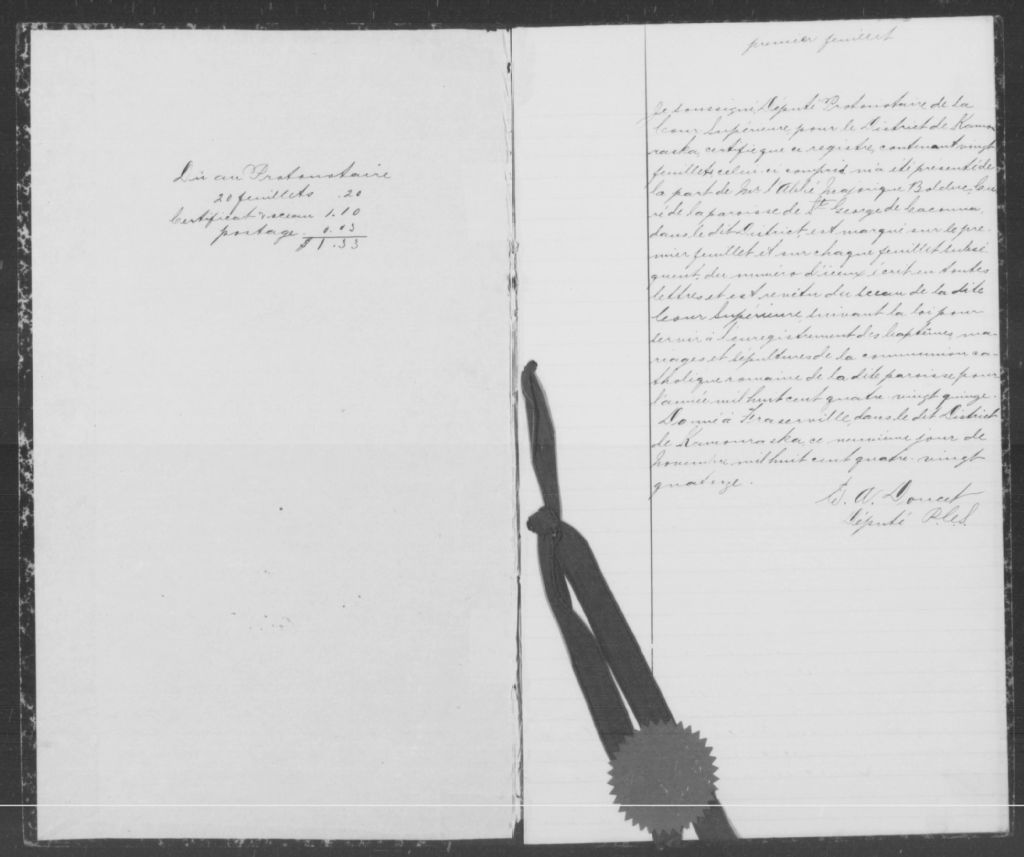 Dû au Protonotaire
20 feuillets .20
Certificat & sceau 1.10
postage 0.03
$1.33
premier feuillet
Je soussigné, Député Protonotaire de la
Cour Supérieure pour le District de Kamou
raska, certifie que ce registre, contenant vingt
feuillets celui-ci compris m'a été présenté de
la part de l'Abbé Majorique Bolduc, Cu
ré de la paroisse de St George de Cacouna,
dans le dit District, est marqué sur le pre
mier feuillet et sur chaque feuillet subsé
quent, du numéro d'iceux écrit en toutes
lettres et est revêtu du sceau de la dite
Cour Supérieure, suivant la loi pour
servir à l'enregistrement des baptêmes, ma
riages, et sépultures de la communion ca
tholique romaine de la dite paroisse pour
l'année mil huit cent quatre-vingt quinze.
Donné à Fraserville, dans le dit District
de Kamouraska, ce neuvième jour de
novembre mil huit cent quatre-vingt
quatorze.
Doucet
Député P.C.S.